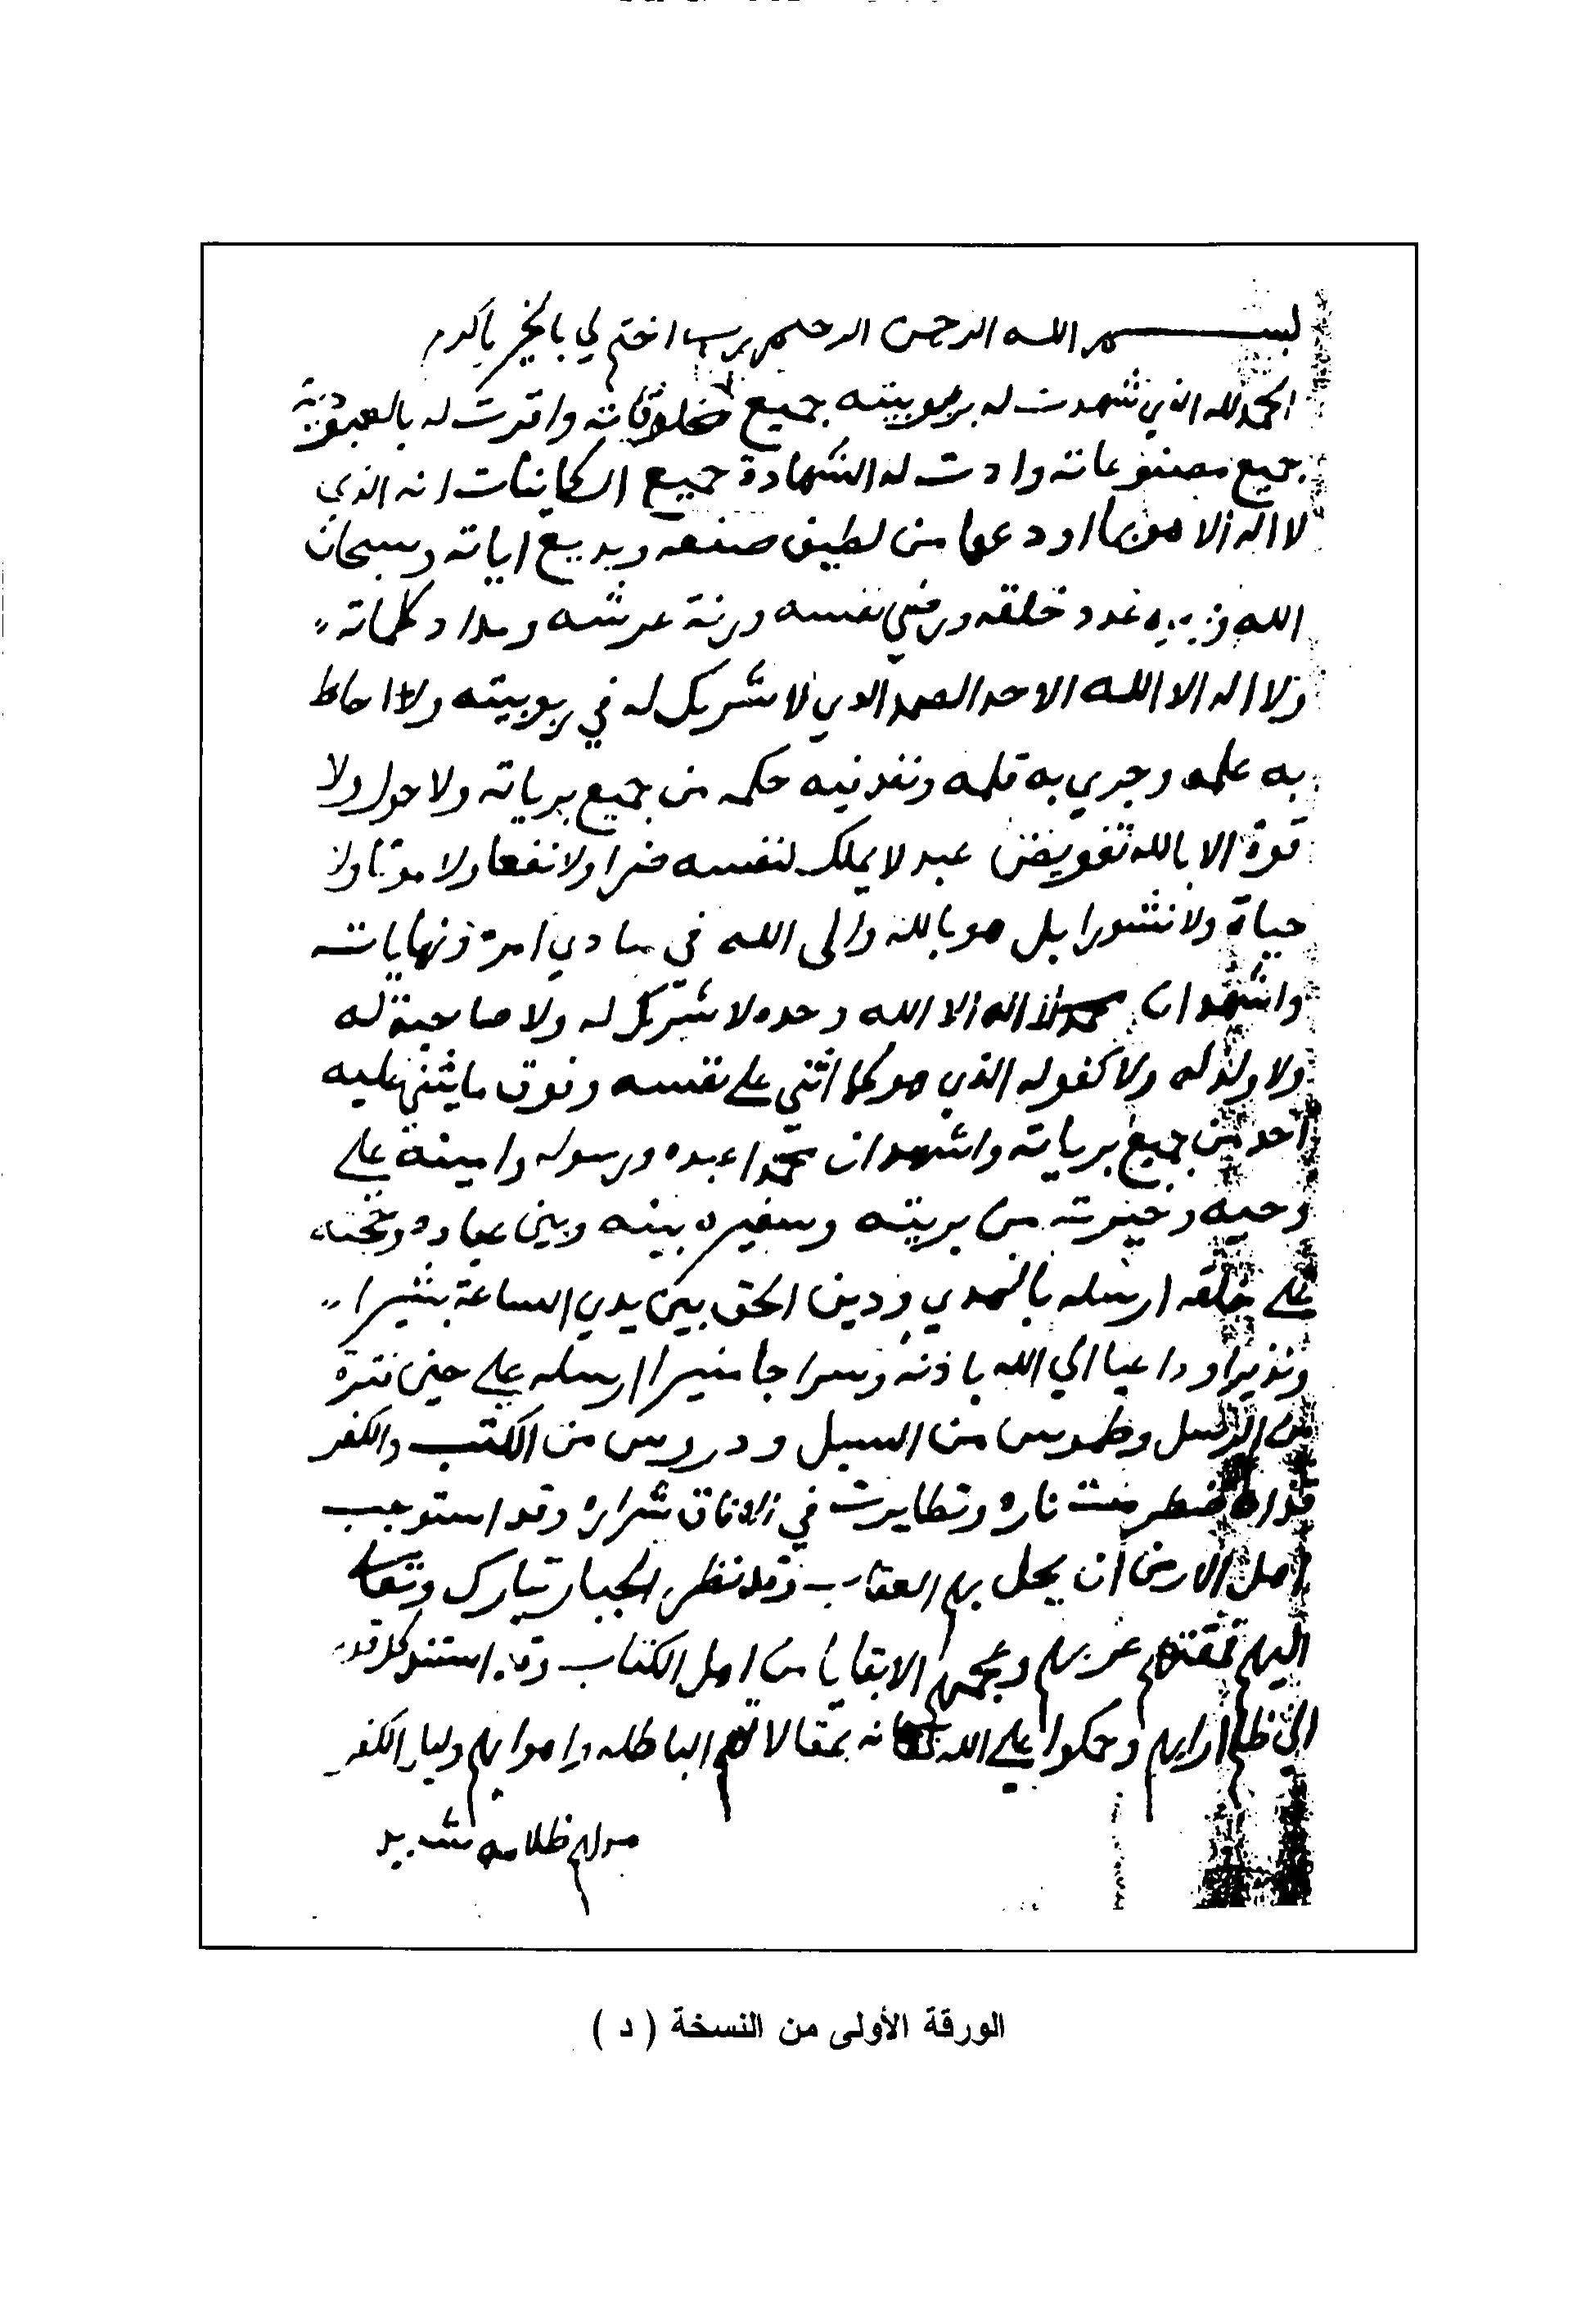 بسم الله الرحمن الرحيم رب اختم لي بالخير يا كريم
الحمد لله الذي شهدت له بربوبيته جميع مخلوقاته واقرت له بالعبودية
جميع مصنوعاته وادت له الشهادة جميع الكاينات انه الذي
لا اله الا هو بما اودعها من لطيف صنعه وبديع اياته وسبحان
الله وبحمده عدد خلقه ورضي نفسه وزنة عرشه ومداد كلماته
ولا اله الا الله الاحد الصمد الذي لا شريك له في ربوبيته ولا احاط
به علمه وجري به قلمه ونفذ فيه حكمه من جميع برياته ولا حول ولا
قوة الا بالله تفويض عبد لا يملك لنفسه ضرا ولا نفعا ولا موتا ولا
حياة ولا نشورا بل هو بالله والى الله في مبادي امره ونهاياته
واشهد ان لا اله الا الله وحده لا شريك له ولا صاحبة له
ولا ولد له ولا كفو له الذي هو كما اثني علي نفسه وفوق ما يثني عليه
احد من جميع برياته واشهد ان محمدا عبده ورسوله وامينه علي
وحيه وخيرته من بريته وسفيره بينه وبين عباده وحجته
علي خلقه ارسله بالهدي ودين الحق بين يدي الساعة بشيرا
ونذيرا وداعيا الي الله باذنه وسراجا منيرا ارسله علي حين فترة
من الرسل وطموس من السبل ودروس من الكتب والكفر
قد اضطرمت ناره وتطايرت في الافاق شراره وقد استوجب
اهل الارض ان يحل بهم العقاب وقد نظر الجبار تبارك وتعالي
اليهم فمقتهم عربهم وعجمهم الا بقايا من اهل الكتاب وقد استند كل قوم
الي ظلم ارايهم وحكموا علي الله سبحانه بمقالاتهم الباطله واهوايهم وليل الكفر
مدلهم ظلامه شديد
الورقة الأولى من النسخة ( د )